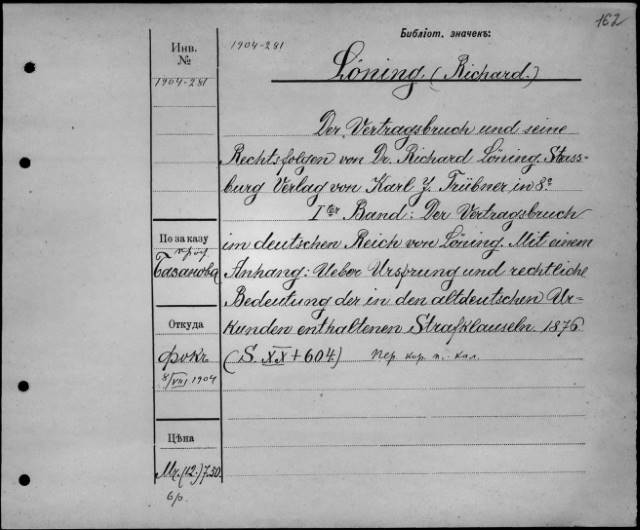 162
Библіот. значекъ:
Инв.
№
1904-281
1904-281
Löning (Richard.)
Der Vertragsbruch und seine
Rechtsfolgen von Dr. Richard Löning. Strass-
burg Verlag von Karl J. Trübner, in 8.°
I ter Band: Der Vertragsbruch
im deutschen Reich von Löning. Mit einem
Anhang: Ueber Ursprung und rechtliche
Bedeutung der in den altdeutschen Ur-
kunden enthaltenen Strafklauseln. 1876
(S. XX + 604.) пер. кор. п. кал.
По заказу
проф.
Базанова
Откуда
Фокъ
8/VIII 1904
Цѣна
Mr. (12.) 7.50
б/р.